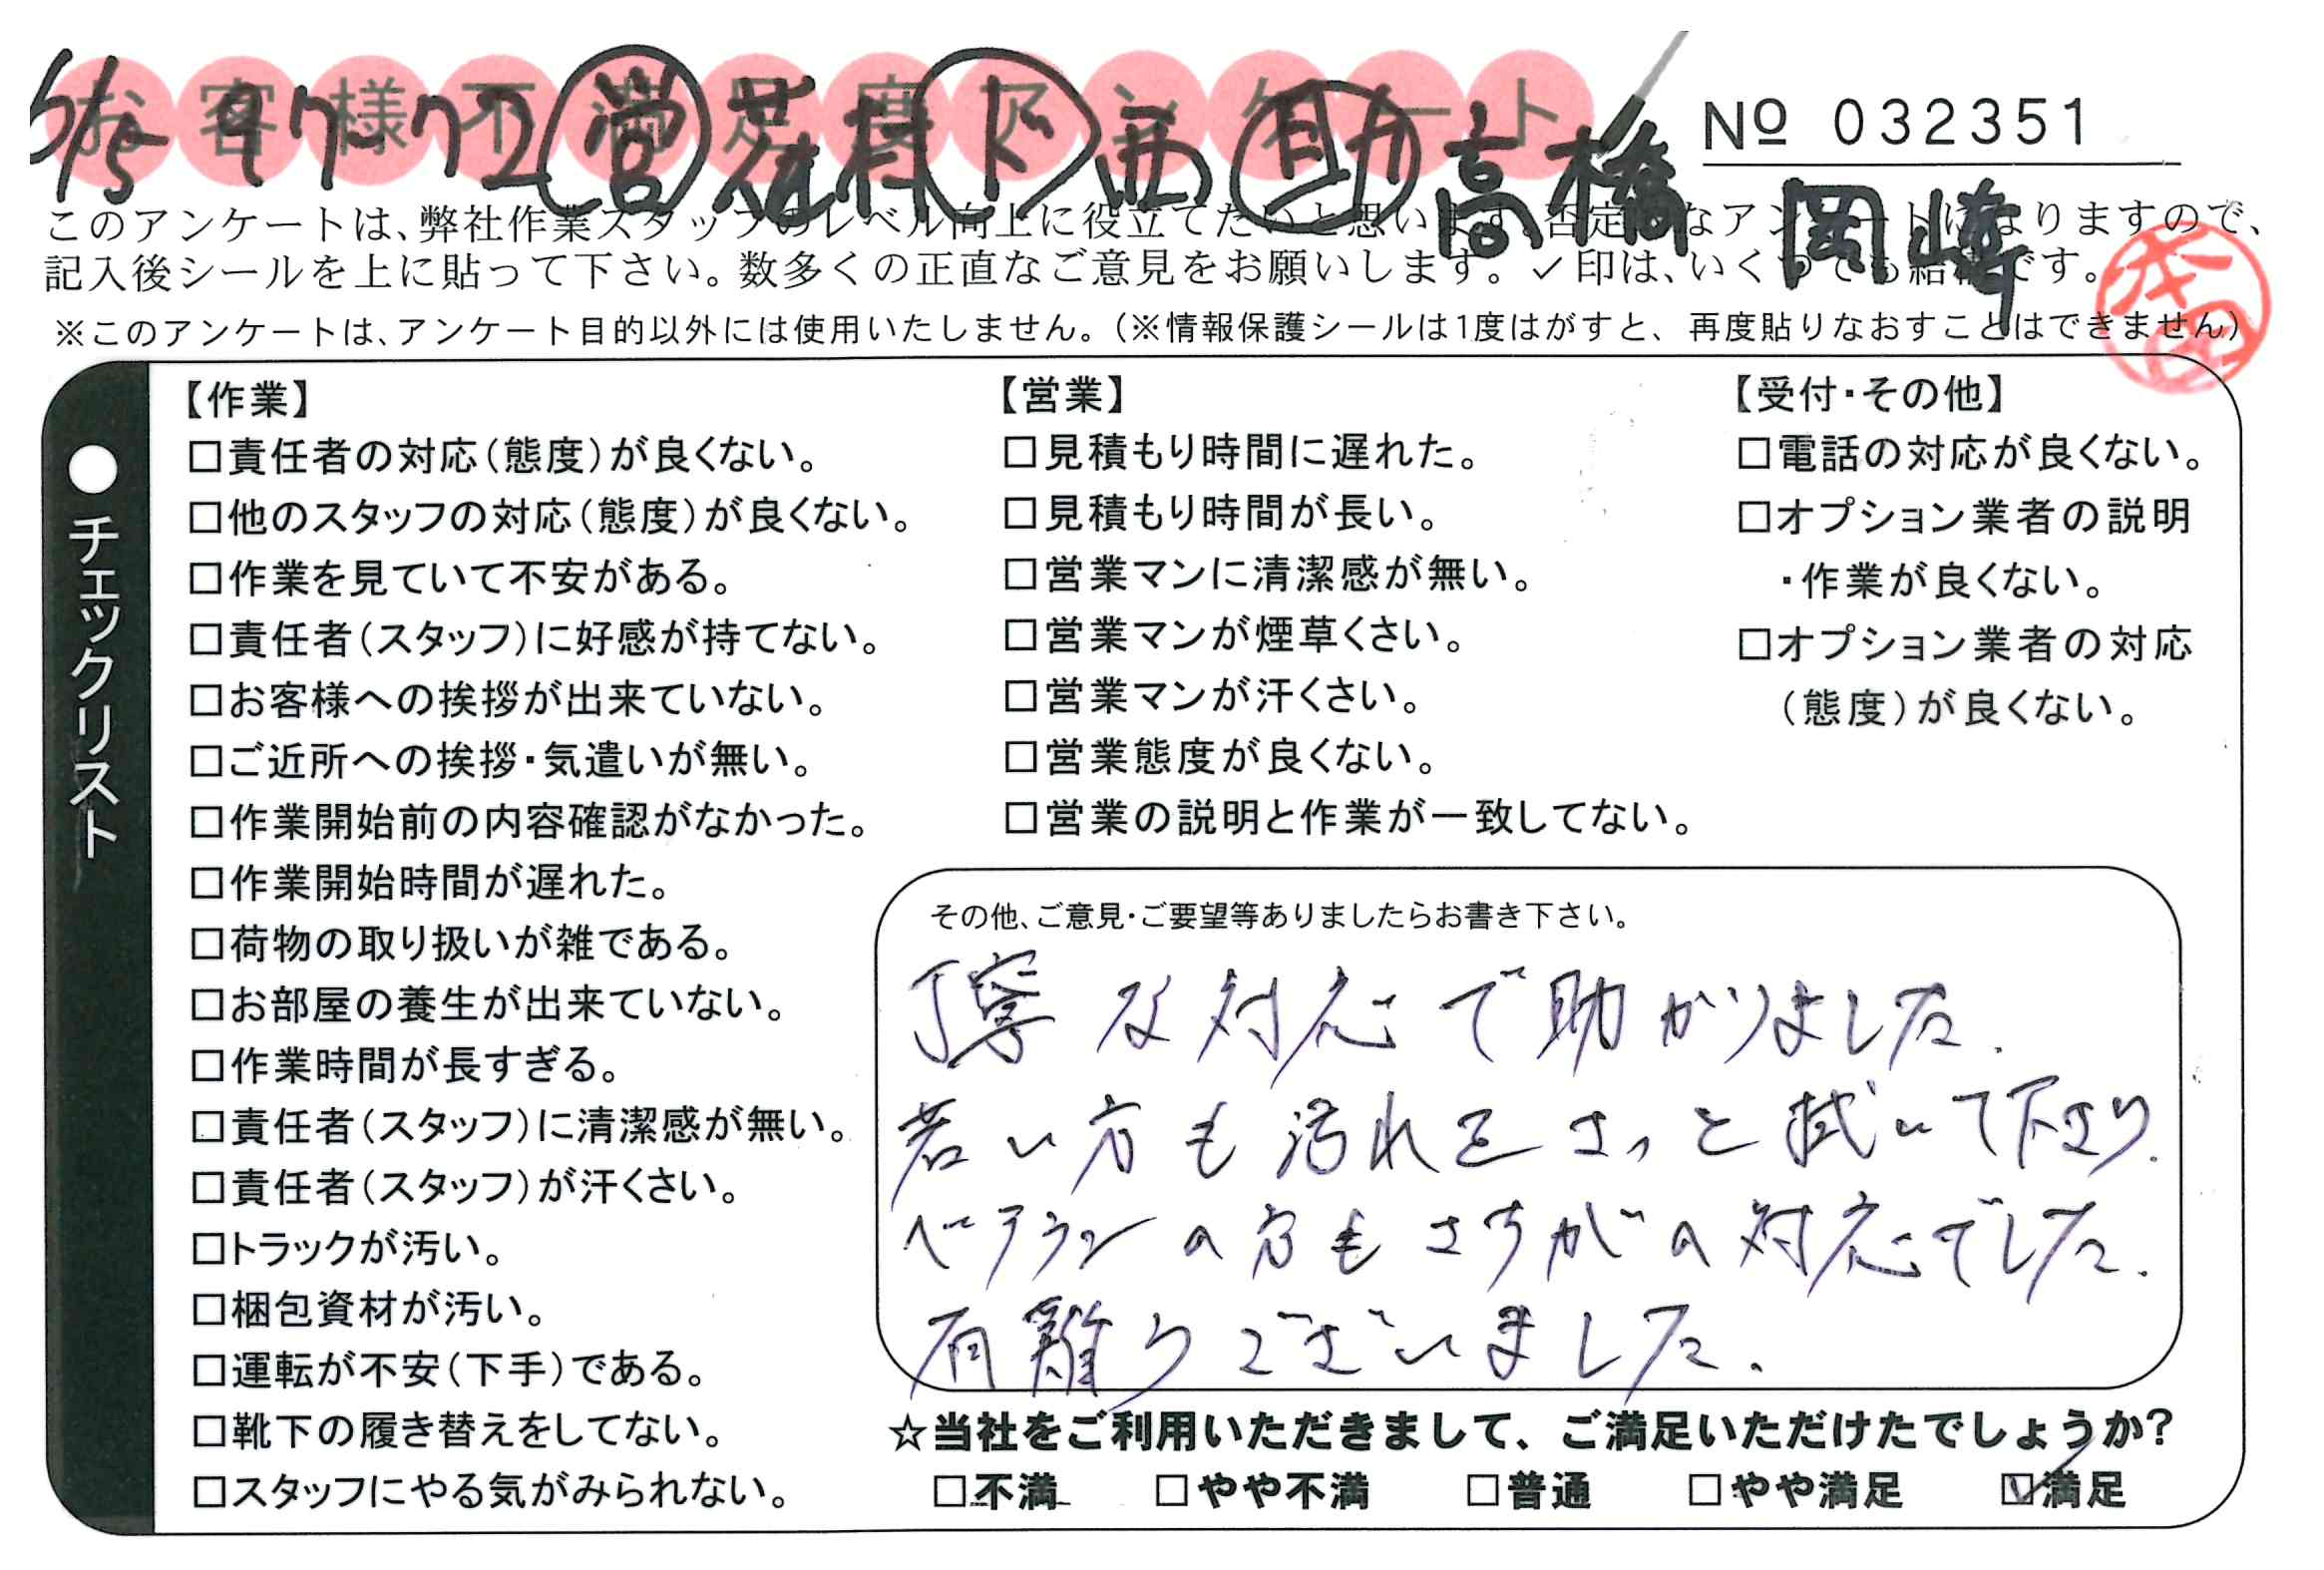 お客様不満足度アンケート
5/15 97-72 営 花村 ド 西 助 高橋 岡崎
No 032351
このアンケートは、弊社作業スタッフのレベル向上に役立てたいと思います。否定的なアンケートになりますので、
記入後シールを上に貼って下さい。数多くの正直なご意見をお願いします。✓印は、いくつでも結構です。
※このアンケートは、アンケート目的以外には使用いたしません。(※情報保護シールは1度はがすと、再度貼りなおすことはできません)
●チェックリスト
【作業】
□責任者の対応(態度)が良くない。
□他のスタッフの対応(態度)が良くない。
□作業を見ていて不安がある。
□責任者(スタッフ)に好感が持てない。
□お客様への挨拶が出来ていない。
□ご近所への挨拶・気遣いが無い。
□作業開始前の内容確認がなかった。
□作業開始時間が遅れた。
□荷物の取り扱いが雑である。
□お部屋の養生が出来ていない。
□作業時間が長すぎる。
□責任者(スタッフ)に清潔感が無い。
□責任者(スタッフ)が汗くさい。
□トラックが汚い。
□梱包資材が汚い。
□運転が不安(下手)である。
□靴下の履き替えをしてない。
□スタッフにやる気がみられない。
【営業】
□見積もり時間に遅れた。
□見積もり時間が長い。
□営業マンに清潔感が無い。
□営業マンが煙草くさい。
□営業マンが汗くさい。
□営業態度が良くない。
□営業の説明と作業が一致してない。
【受付・その他】
□電話の対応が良くない。
□オプション業者の説明
・作業が良くない。
□オプション業者の対応
(態度)が良くない。
その他、ご意見・ご要望等ありましたらお書き下さい。
丁寧な対応で助かりました。
若い方も汚れをさっと拭いて下さり、
ベテランの方もさすがの対応でした。
有難うございました。
☆当社をご利用いただきまして、ご満足いただけたでしょうか?
□不満 □やや不満 □普通 □やや満足 ☑満足